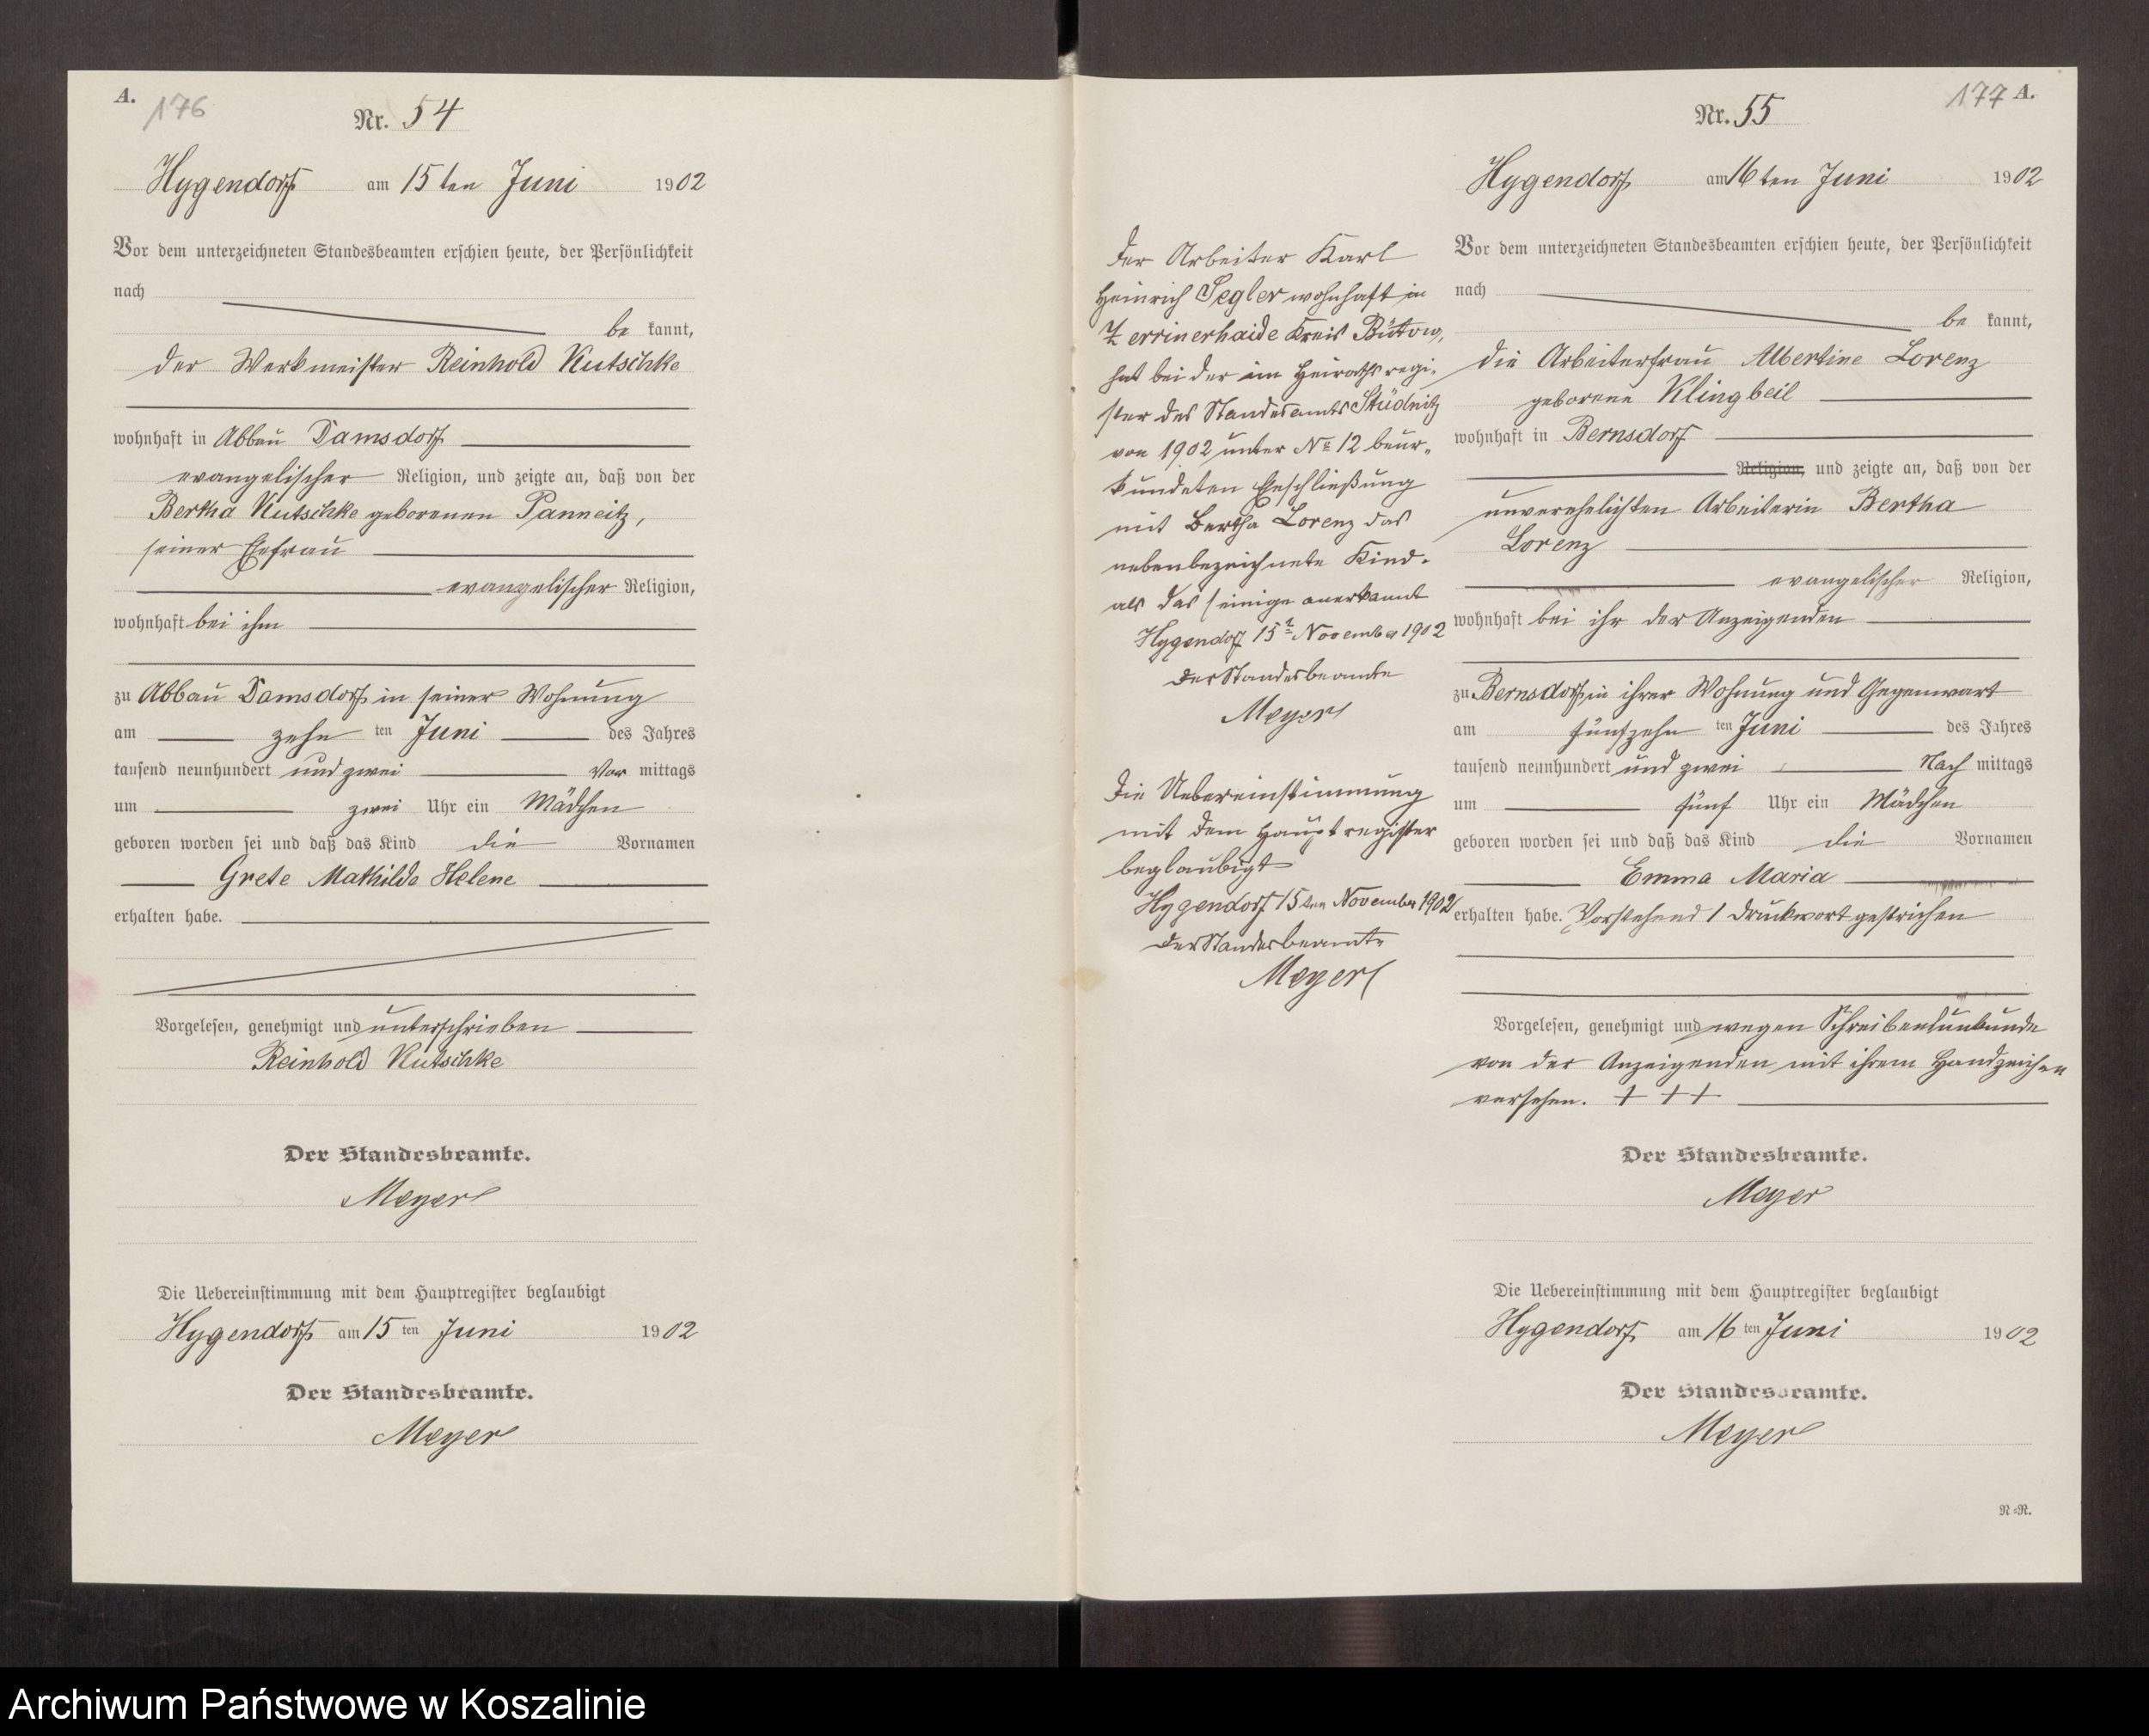 A.
176
Nr. 54
Hygendorf am 15ten Juni 1902
Vor dem unterzeichneten Standesbeamten erschien heute, der Persönlichkeit
nach
be kannt,
der Werkmeister Reinhold Kutschke
wohnhaft in Abbau Damsdorf
evangelischer Religion, und zeigte an, daß von der
Bertha Kutschke geborenen Panneitz,
seiner Ehefrau
evangelischer Religion,
wohnhaft bei ihm
zu Abbau Damsdorf in seiner Wohnung
am zehn ten Juni des Jahres
tausend neunhundert und zwei Vor mittags
um zwei Uhr ein Mädchen
geboren worden sei und daß das Kind die Vornamen
Grete Mathilde Helene
erhalten habe.
Vorgelesen, genehmigt und unterschrieben
Reinhold Kutschke
Der Standesbeamte.
Meyer
Die Uebereinstimmung mit dem Hauptregister beglaubigt
Hygendorf am 15 ten Juni 1902
Der Standesbeamte.
Meyer
Der Arbeiter Karl
Heinrich Segler wohnhaft in
Kreis Bütow,
hat bei der im Heirathsregi-
ster des Standesamts Stüdnitz
von 1902 unter No 12 beur-
kundeten Eheschließung
mit Bertha Lorenz das
nebenbezeichnete Kind
als das seinige anerkannt
Hygendorf 15t November 1902
Der Standesbeamte
Meyer
Die Uebereinstimmung
mit dem Hauptregister
beglaubigt
Hygendorf 15ten November 1902
Der Standesbeamte
Meyer
177 A.
Nr. 55
Hygendorf am 16ten Juni 1902
Vor dem unterzeichneten Standesbeamten erschien heute, der Persönlichkeit
nach
be kannt,
die Arbeiterfrau Albertine Lorenz
geborene Klingbeil
wohnhaft in Bernsdorf
Religion, und zeigte an, daß von der
unverehelichten Arbeiterin Bertha
Lorenz
evangelischer Religion,
wohnhaft bei ihr der Anzeigenden
zu Bernsdorf in ihrer Wohnung und Gegenwart
am fünfzehn ten Juni des Jahres
tausend neunhundert und zwei Nach mittags
um fünf Uhr ein Mädchen
geboren worden sei und daß das Kind die Vornamen
Emma Maria
erhalten habe. Vorstehend 1 Druckwort gestrichen
Vorgelesen, genehmigt und wegen Schreibensunkunde
von der Anzeigenden mit ihrem Handzeichen
versehen. + + +
Der Standesbeamte.
Meyer
Die Uebereinstimmung mit dem Hauptregister beglaubigt
Hygendorf am 16 ten Juni 1902
Der Standesbeamte.
Meyer
N=R.
Archiwum Państwowe w Koszalinie